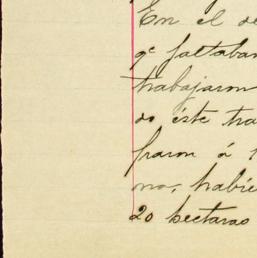 En el de
qe faltaban
trabajaron
do éste tra
fraron á 1
no, habie
20 hectaras